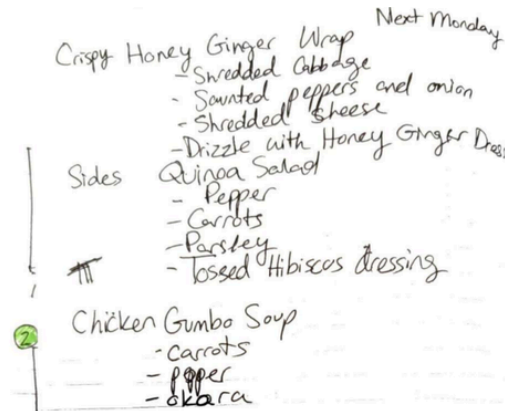 Next Monday
Crispy Honey Ginger Wrap
- Shredded Cabbage
- Saunted peppers and onion
- Shredded sheese
- Drizzle with Honey Ginger Dress
Sides Quinoa Salad
- Pepper
- Carrots
- Parsley
- Tossed Hibiscus dressing
2 Chicken Gumbo Soup
- carrots
- pepper
- okara